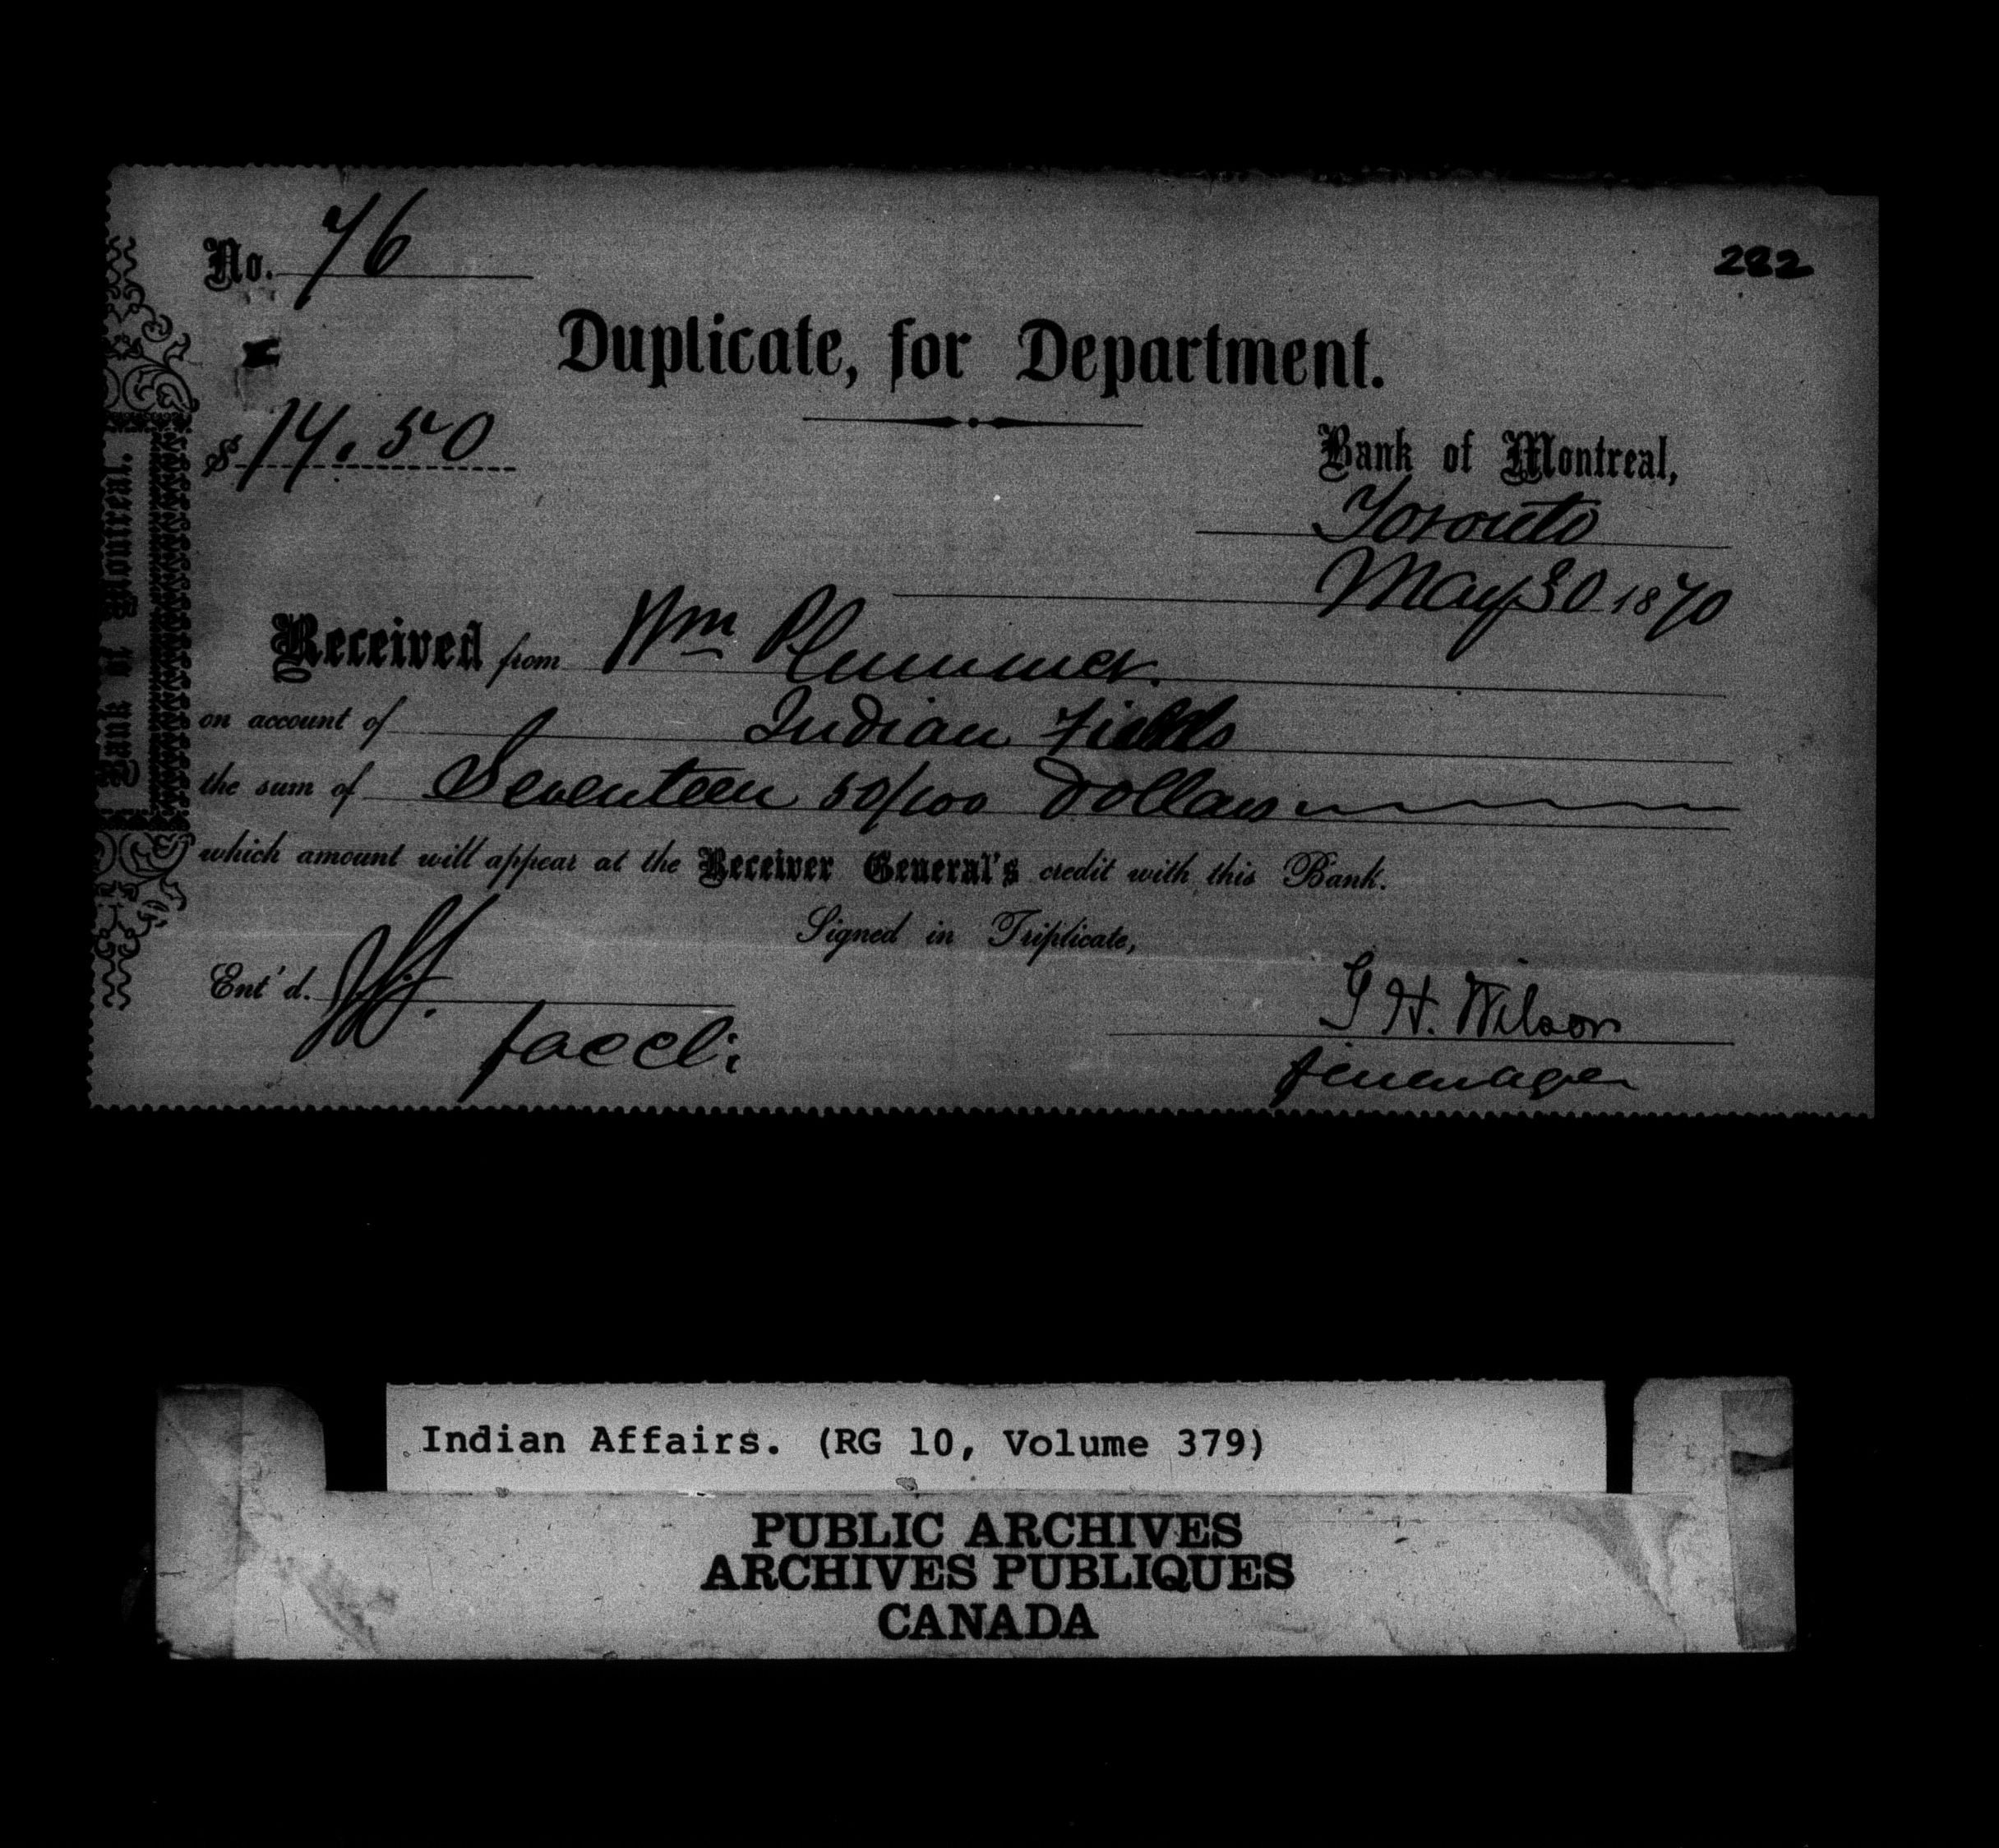 No. 76
282
Duplicate, for Department.
$ 17.50
Bank of Montreal,
Toronto
May 30 1870
Received from Wm Plummer.
on account of Indian Fields
the sum of Seventeen 50/100 Dollars
which amount will appear at the Receiver General's credit with this Bank.
Signed in Triplicate,
Ent'd.
G H. Wilson
p manager
p acct:
Bank of Montreal.
Indian Affairs. (RG 10, Volume 379)
PUBLIC ARCHIVES
ARCHIVES PUBLIQUES
CANADA